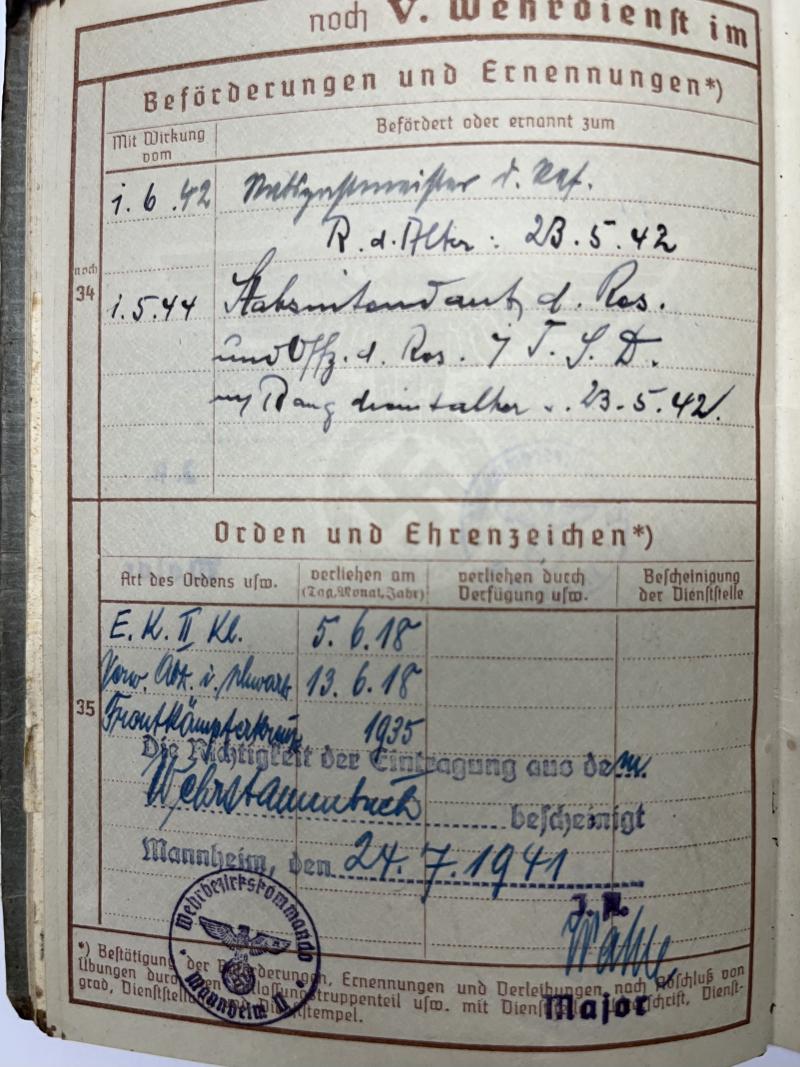 noch V. Wehrdienst im
Beförderungen und Ernennungen*)
Mit Wirkung vom
Befördert oder ernannt zum
noch 34
1. 6. 42
d. Res.
R. d. Alter: 23. 5. 42
1. 5. 44 Stabsintendant d. Res.
und Offz. d. Res. T. S. D.
Rangdienstalter v. 23. 5. 42.
Orden und Ehrenzeichen*)
Art des Ordens usw.
verliehen am (Tag, Monat, Jahr)
verliehen durch Verfügung usw.
Bescheinigung der Dienststelle
35
E. K. II Kl. 5. 6. 18
Verw. Abz. i. schwarz 13. 6. 18
Frontkämpferkreuz 1935
Die Richtigkeit der Eintragung aus dem
Wehrstammbuch bescheinigt
Mannheim, den 24. 7. 1941
Major
Wehrbezirkskommando Mannheim
*) Bestätigung der Beförderungen, Ernennungen und Verleihungen nach Abschluß von
Übungen durch den Entlassungstruppenteil usw. mit Dienst-
grad, Dienststelle und Dienststempel.